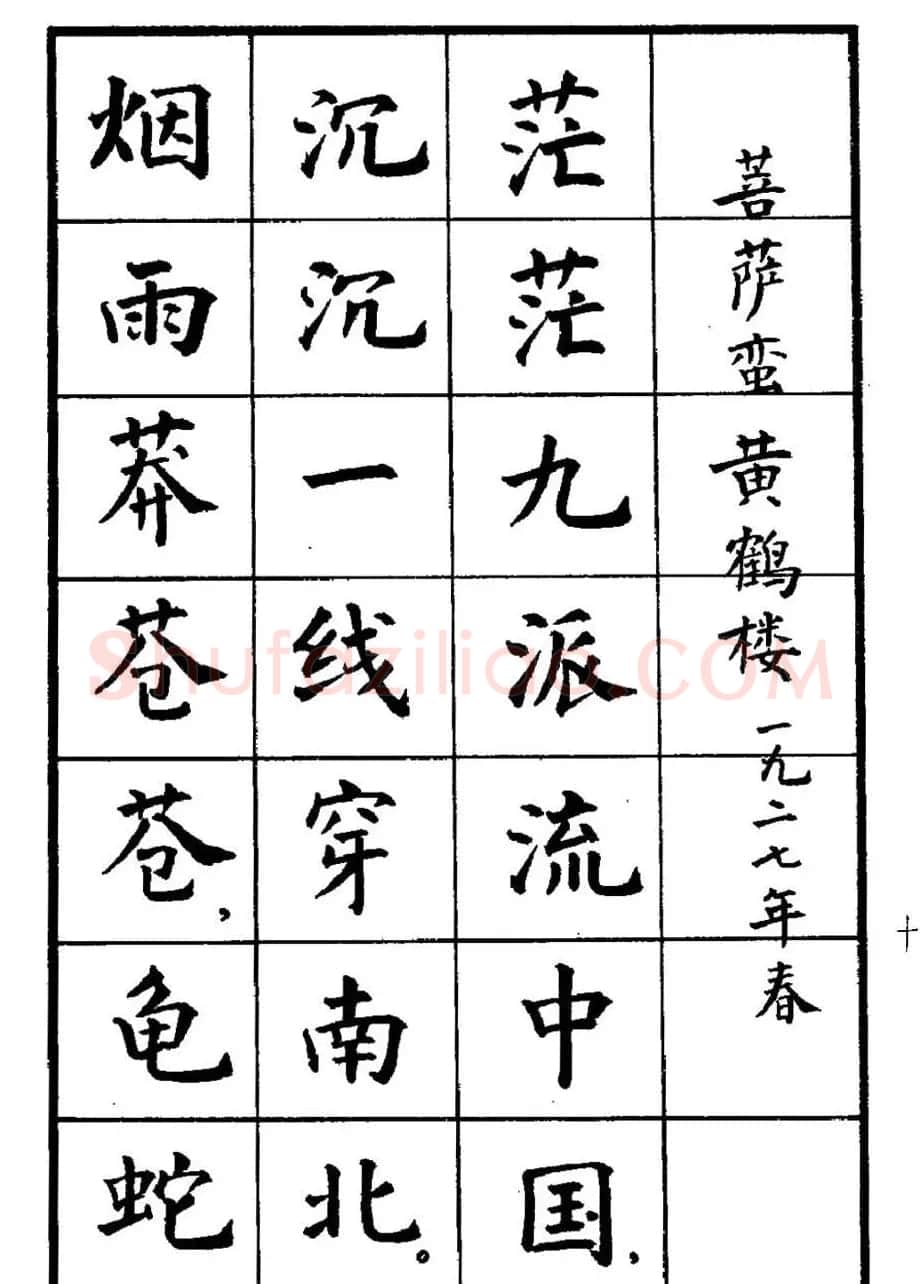 菩萨蛮 黄鹤楼 一九二七年春
茫茫九派流中国,
沉沉一线穿南北。
烟雨莽苍苍,龟蛇
Shufaziliao.COM